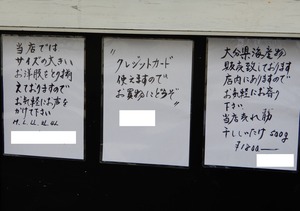 当店では
サイズの大きい
お洋服をとり揃
えておりますので
お気軽にお声を
かけて下さい
"
クレジットカード
使えますので
お買物にどうぞ
"
大分県海産物
販売致しております
店内にありますので
お気軽にお寄り
下さい
当店売れ筋
干ししいたけ500g
¥1800